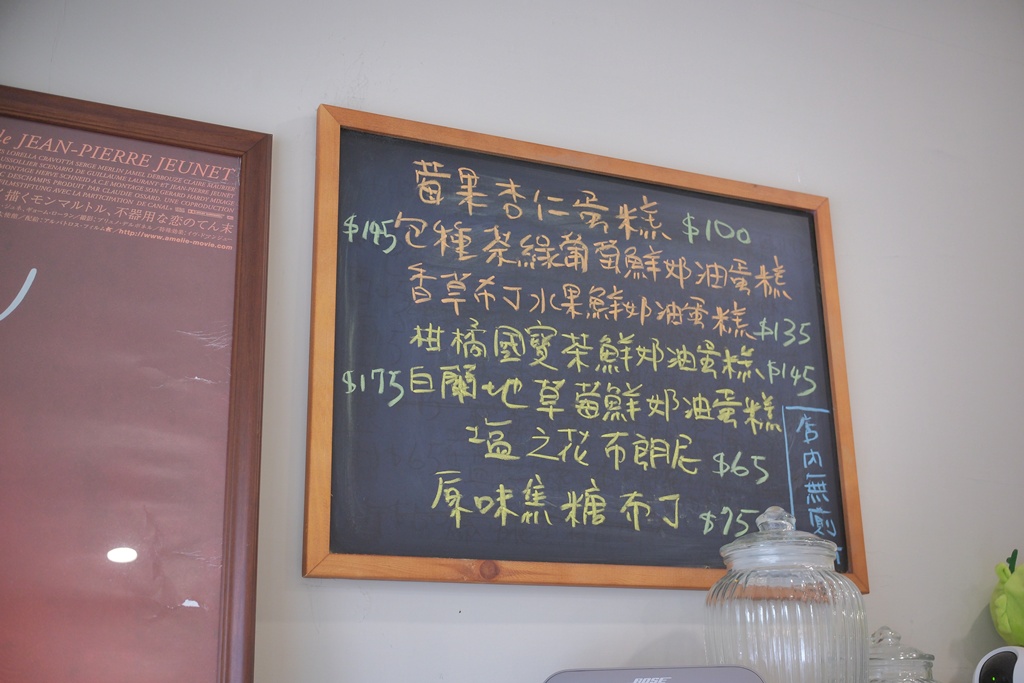 de JEAN-PIERRE JEUNET
描くモンマルトル、不器用な恋のてん末
http://www.amelie-movie.com
莓果杏仁蛋糕 $100
$145 包種茶綠葡萄鮮奶油蛋糕
香草布丁水果鮮奶油蛋糕 $135
柑橘國寶茶鮮奶油蛋糕 $145
$175 白蘭地草莓鮮奶油蛋糕
塩之花布朗尼 $65
原味焦糖布丁 $75
店內無廁
BOSE